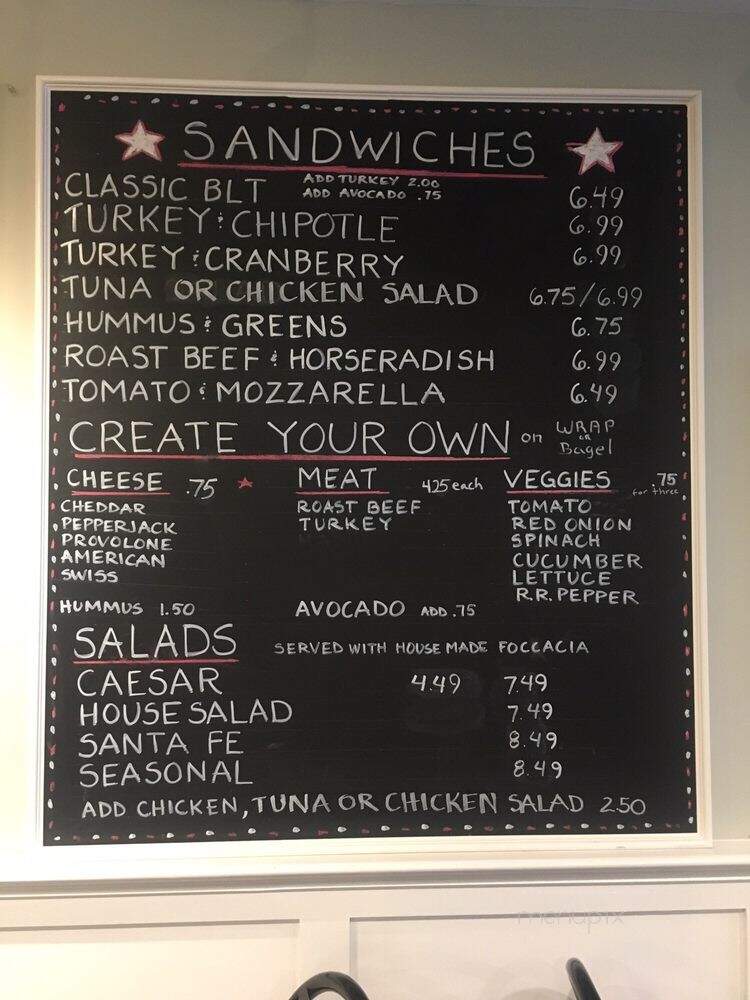 SANDWICHES
CLASSIC BLT ADD TURKEY 2.00 6.49
ADD AVOCADO .75
TURKEY & CHIPOTLE 6.99
TURKEY & CRANBERRY 6.99
TUNA OR CHICKEN SALAD 6.75/6.99
HUMMUS & GREENS 6.75
ROAST BEEF & HORSERADISH 6.99
TOMATO & MOZZARELLA 6.49
CREATE YOUR OWN on WRAP
OR
Bagel
CHEESE .75
CHEDDAR
PEPPERJACK
PROVOLONE
AMERICAN
SWISS
HUMMUS 1.50
MEAT 4.25 each
ROAST BEEF
TURKEY
AVOCADO ADD .75
VEGGIES .75
for three
TOMATO
RED ONION
SPINACH
CUCUMBER
LETTUCE
R.R. PEPPER
SALADS SERVED WITH HOUSE MADE FOCCACIA
CAESAR 4.49 7.49
HOUSE SALAD 7.49
SANTA FE 8.49
SEASONAL 8.49
ADD CHICKEN, TUNA OR CHICKEN SALAD 2.50
menupix